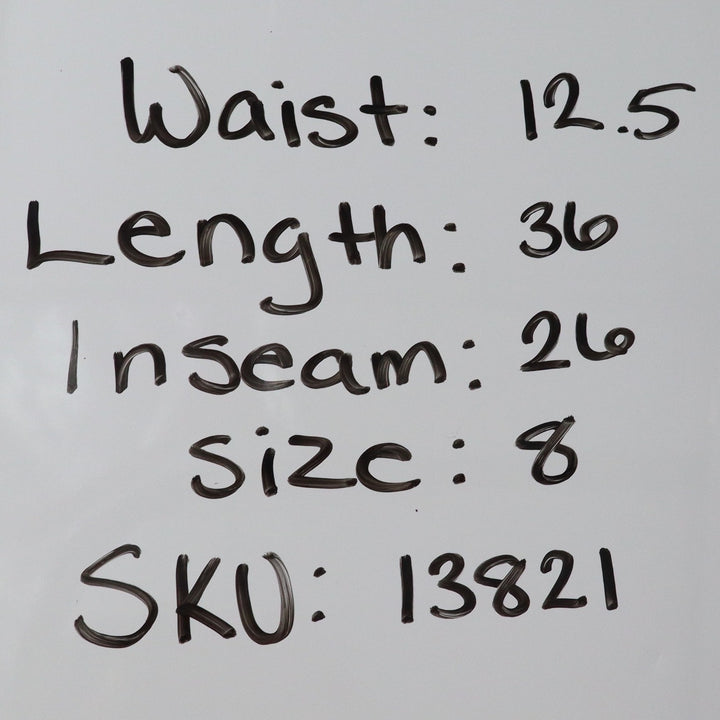 Waist: 12.5
Length: 36
Inseam: 26
Size: 8
SKU: 13821